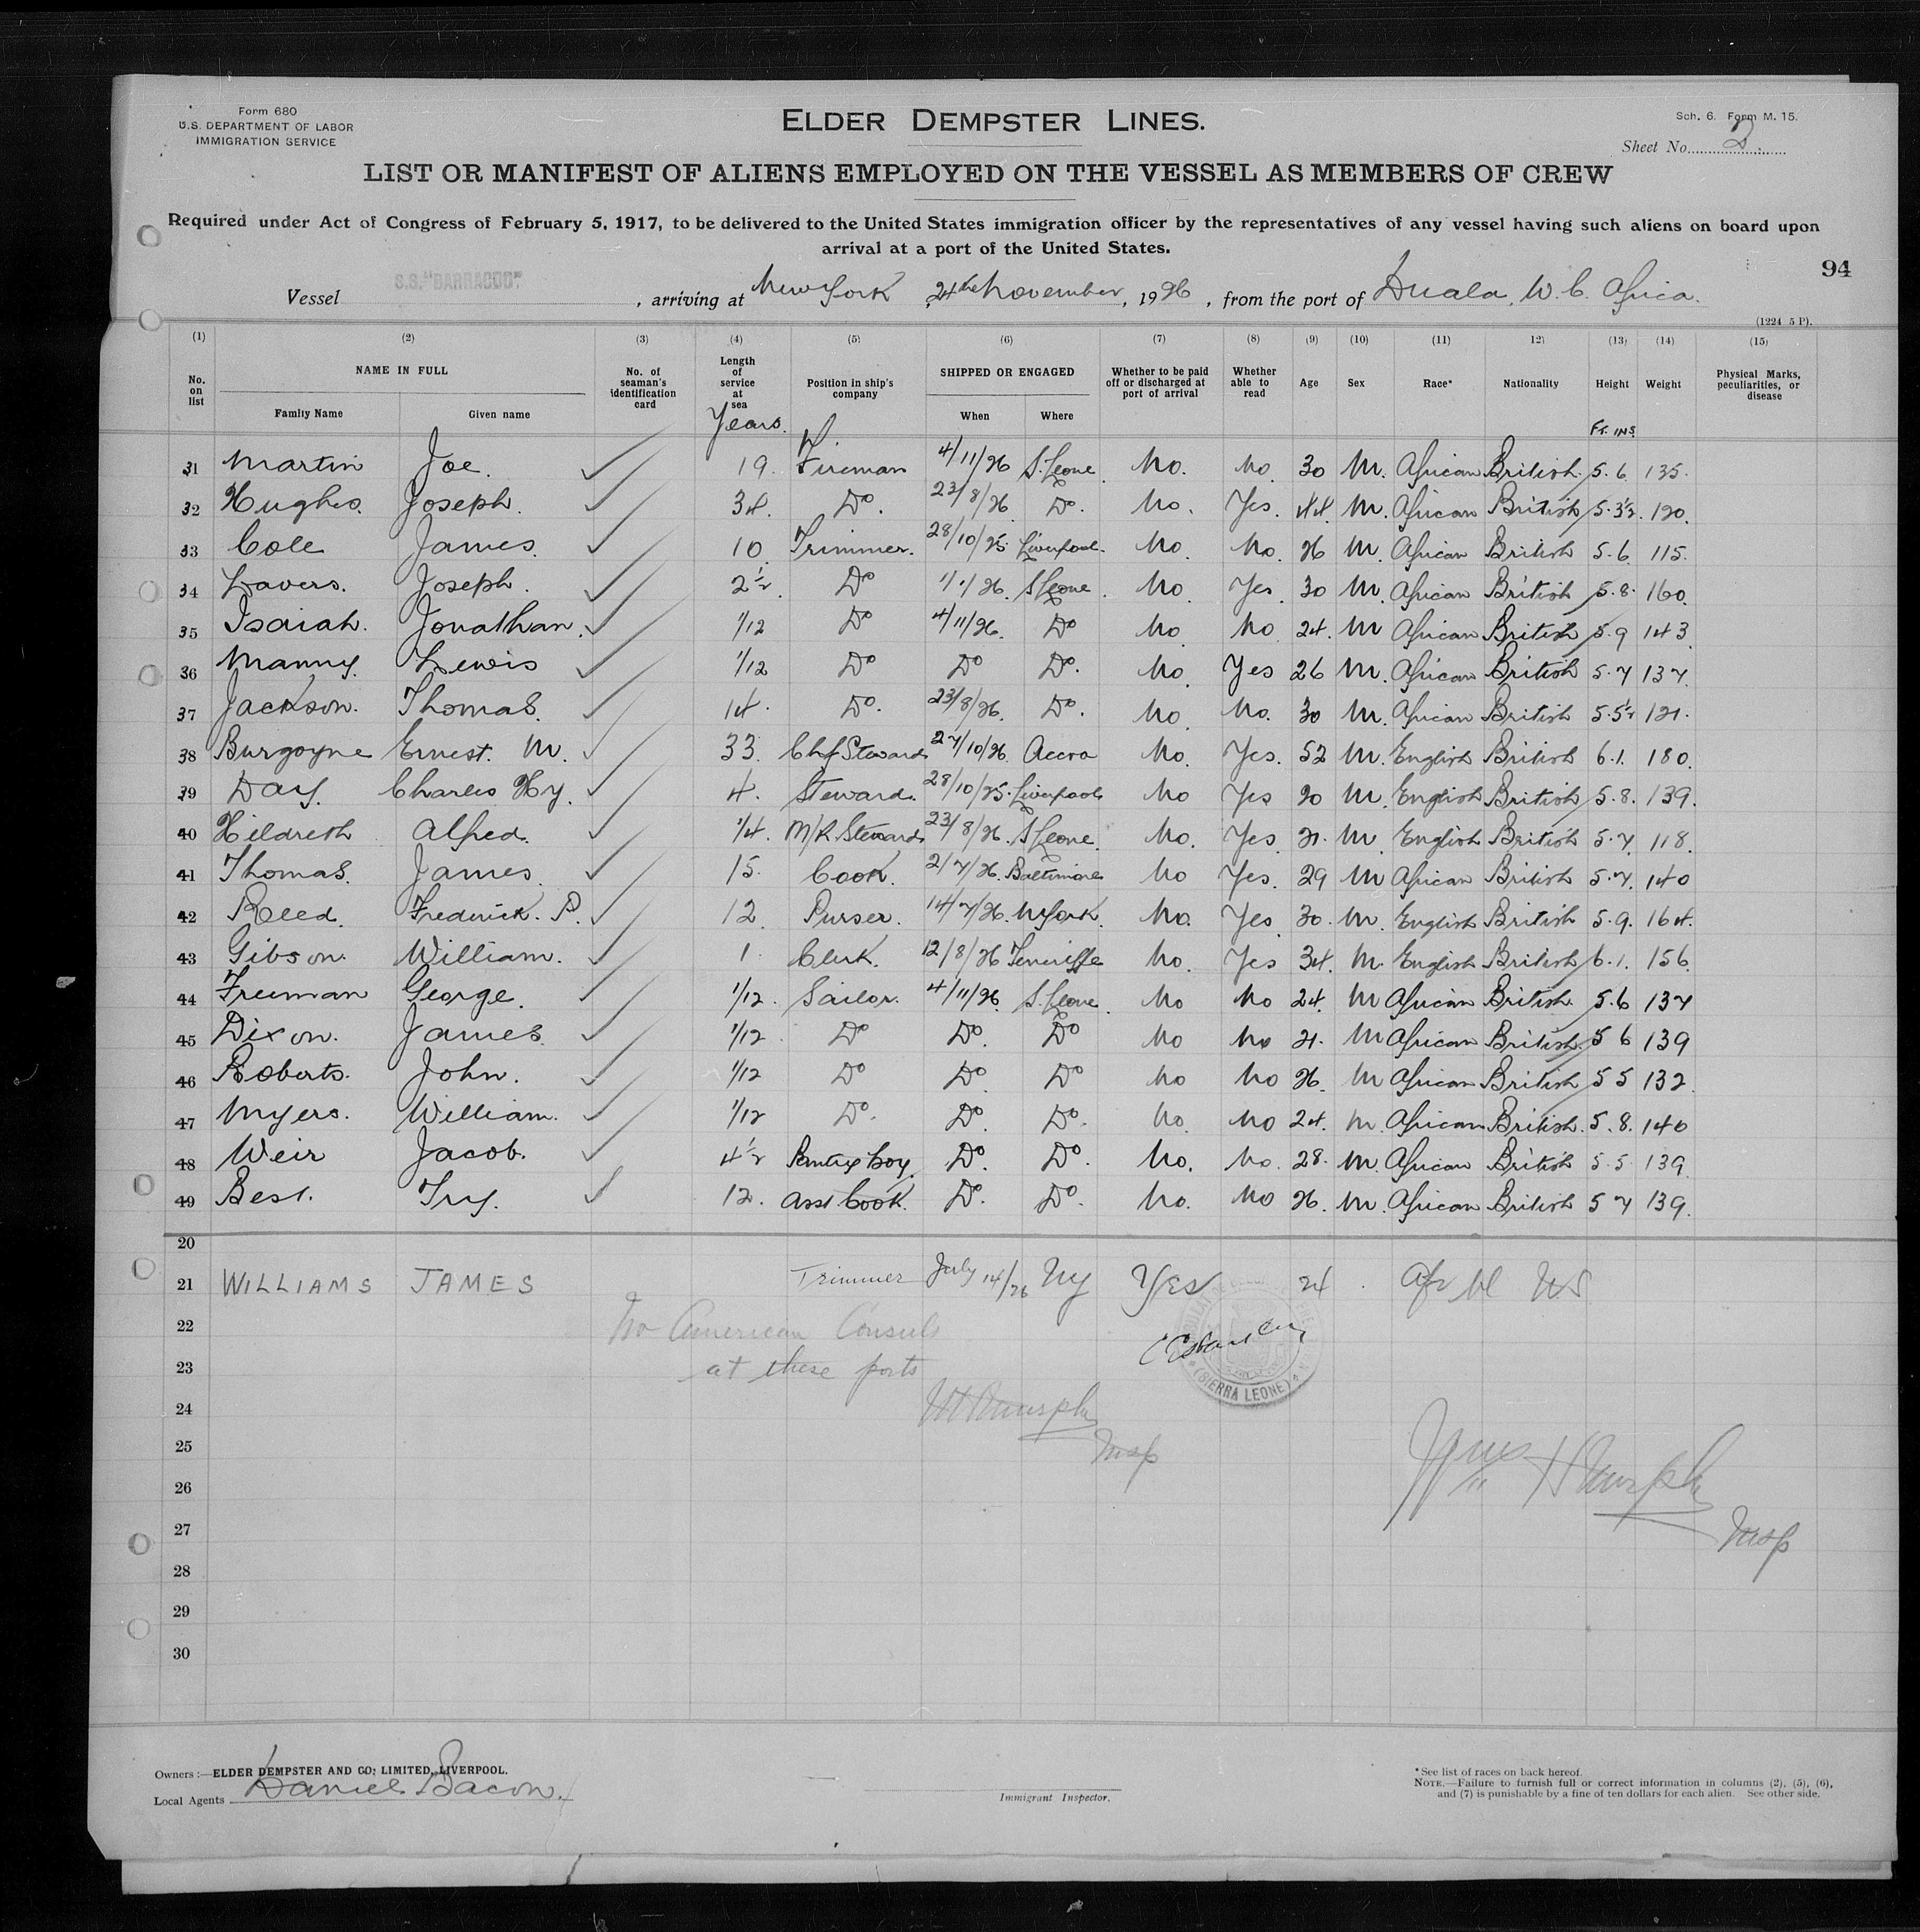 Form 680
U.S. DEPARTMENT OF LABOR
IMMIGRATION SERVICE
ELDER DEMPSTER LINES.
Sch. 6. Form M. 15.
Sheet No. 2
LIST OR MANIFEST OF ALIENS EMPLOYED ON THE VESSEL AS MEMBERS OF CREW
Required under Act of Congress of February 5, 1917, to be delivered to the United States immigration officer by the representatives of any vessel having such aliens on board upon
arrival at a port of the United States.
94
Vessel S.S. "BARRACOO" , arriving at New York 24th November, 1926 , from the port of Duala, W. C. Africa.
(1224 5 P).
(1) (2) (3) (4) (5) (6) (7) (8) (9) (10) (11) 12) (13) (14) (15)
No. on list NAME IN FULL Family Name Given name No. of seaman's identification card Length of service at sea Years. Position in ship's company SHIPPED OR ENGAGED When Where Whether to be paid off or discharged at port of arrival Whether able to read Age Sex Race* Nationality Height Ft. INS. Weight Physical Marks, peculiarities, or disease
31 Martin Joe. 19. Fireman 4/11/26 S. Leone. No. No. 30 M. African British. 5.6. 135.
32 Hughes. Joseph. 34. Do. 23/8/26. Do. No. Yes. 44. M. African British 5.3½. 120.
33 Cole James. 10. Trimmer. 28/10/25. Liverpool. No. No. 26 M. African British 5.6. 115.
34 Lavers. Joseph. 2½. Do 1/1/26. S Leone. No. Yes. 30 M. African British 5.8. 160.
35 Isaiah. Jonathan. 1/12 Do 4/11/26. Do No. No 24. M African British 5.9 143
36 Manny. Lewis 1/12 Do Do Do. No. Yes 26 M. African British 5.7 137.
37 Jackson. Thomas. 14. Do. 23/8/26. Do. No. No. 30 M. African British 5.5½ 121.
38 Burgoyne Ernest. M. 33. Chf Steward 27/10/26. Accra No. Yes. 52 M. English British 6.1. 180.
39 Day. Charles Hy. 4. Steward. 28/10/25. Liverpool No Yes 20 M. English British 5.8. 139.
40 Hildreth Alfred. ¼. M/R Steward 23/8/26. S Leone. No. Yes. 21. M. English British 5.7. 118.
41 Thomas. James. 15. Cook. 2/7/26. Baltimore No Yes. 29 M African British 5.7. 140
42 Reed. Frederick. P. 12. Purser. 14/7/26. N York. No. Yes. 30. M. English British 5.9. 164.
43 Gibson. William. 1. Clerk. 12/8/26 Teneriffe No. Yes 34. M. English British 6.1. 156.
44 Freeman George. 1/12. Sailor. 4/11/26. S. Leone. No No 24. M African British. 5.6 137
45 Dixon. James. 1/12 Do Do. Do No No 21. M African British. 5 6 139
46 Roberts. John. 1/12 Do Do. Do No No 26. M African British 5 5 132.
47 Myers. William. 1/12 Do. Do. Do. No. No 24. M. African British. 5.8. 140
48 Weir Jacob. 4½ Pantry boy. Do. Do. No. No. 28. M. African British 5.5 139.
49 Best. Try. 12. Asst Cook. Do. Do. No. No 26. M. African British 5 7 139.
20
21 WILLIAMS JAMES Trimmer July 14/26 NY Yes 24 Afr bl US
22 No American Consuls
23 at these ports
(SIERRA LEONE)
24
25 Insp
26
27 Insp
28
29
30
Owners:—ELDER DEMPSTER AND CO; LIMITED, LIVERPOOL.
Local Agents Daniel Bacon.
Immigrant Inspector.
*See list of races on back hereof.
NOTE.—Failure to furnish full or correct information in columns (2), (5), (6),
and (7) is punishable by a fine of ten dollars for each alien. See other side.